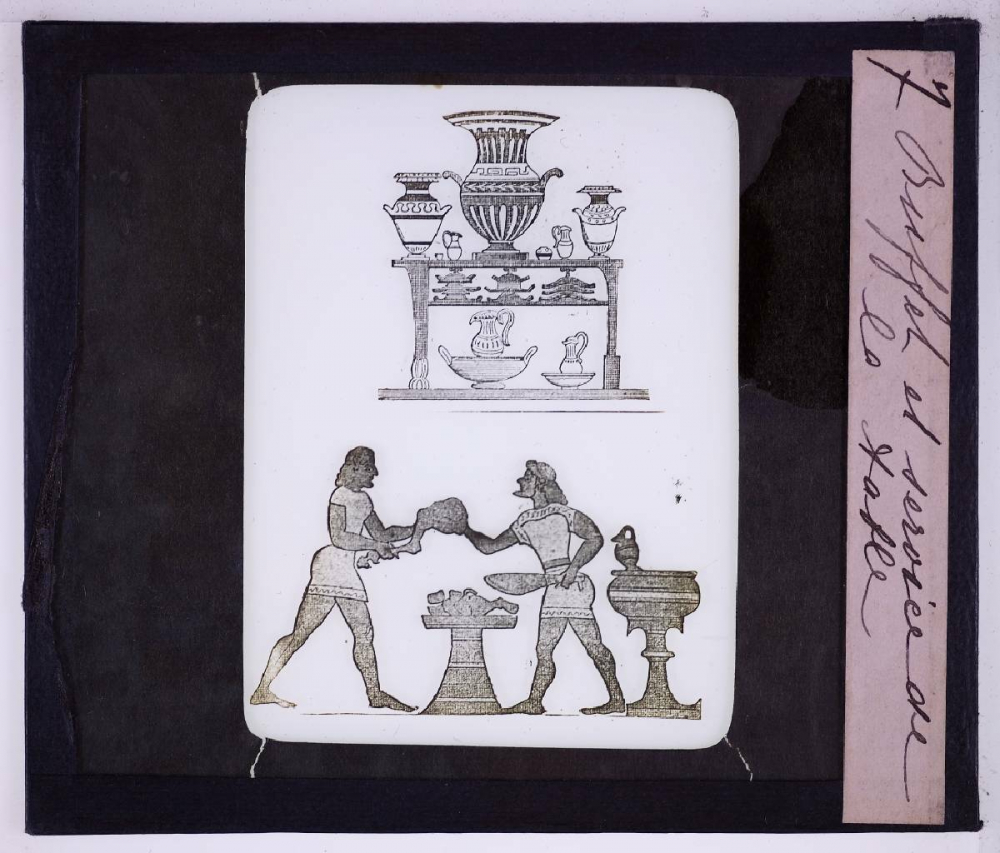 7 Buffet et service de
la table